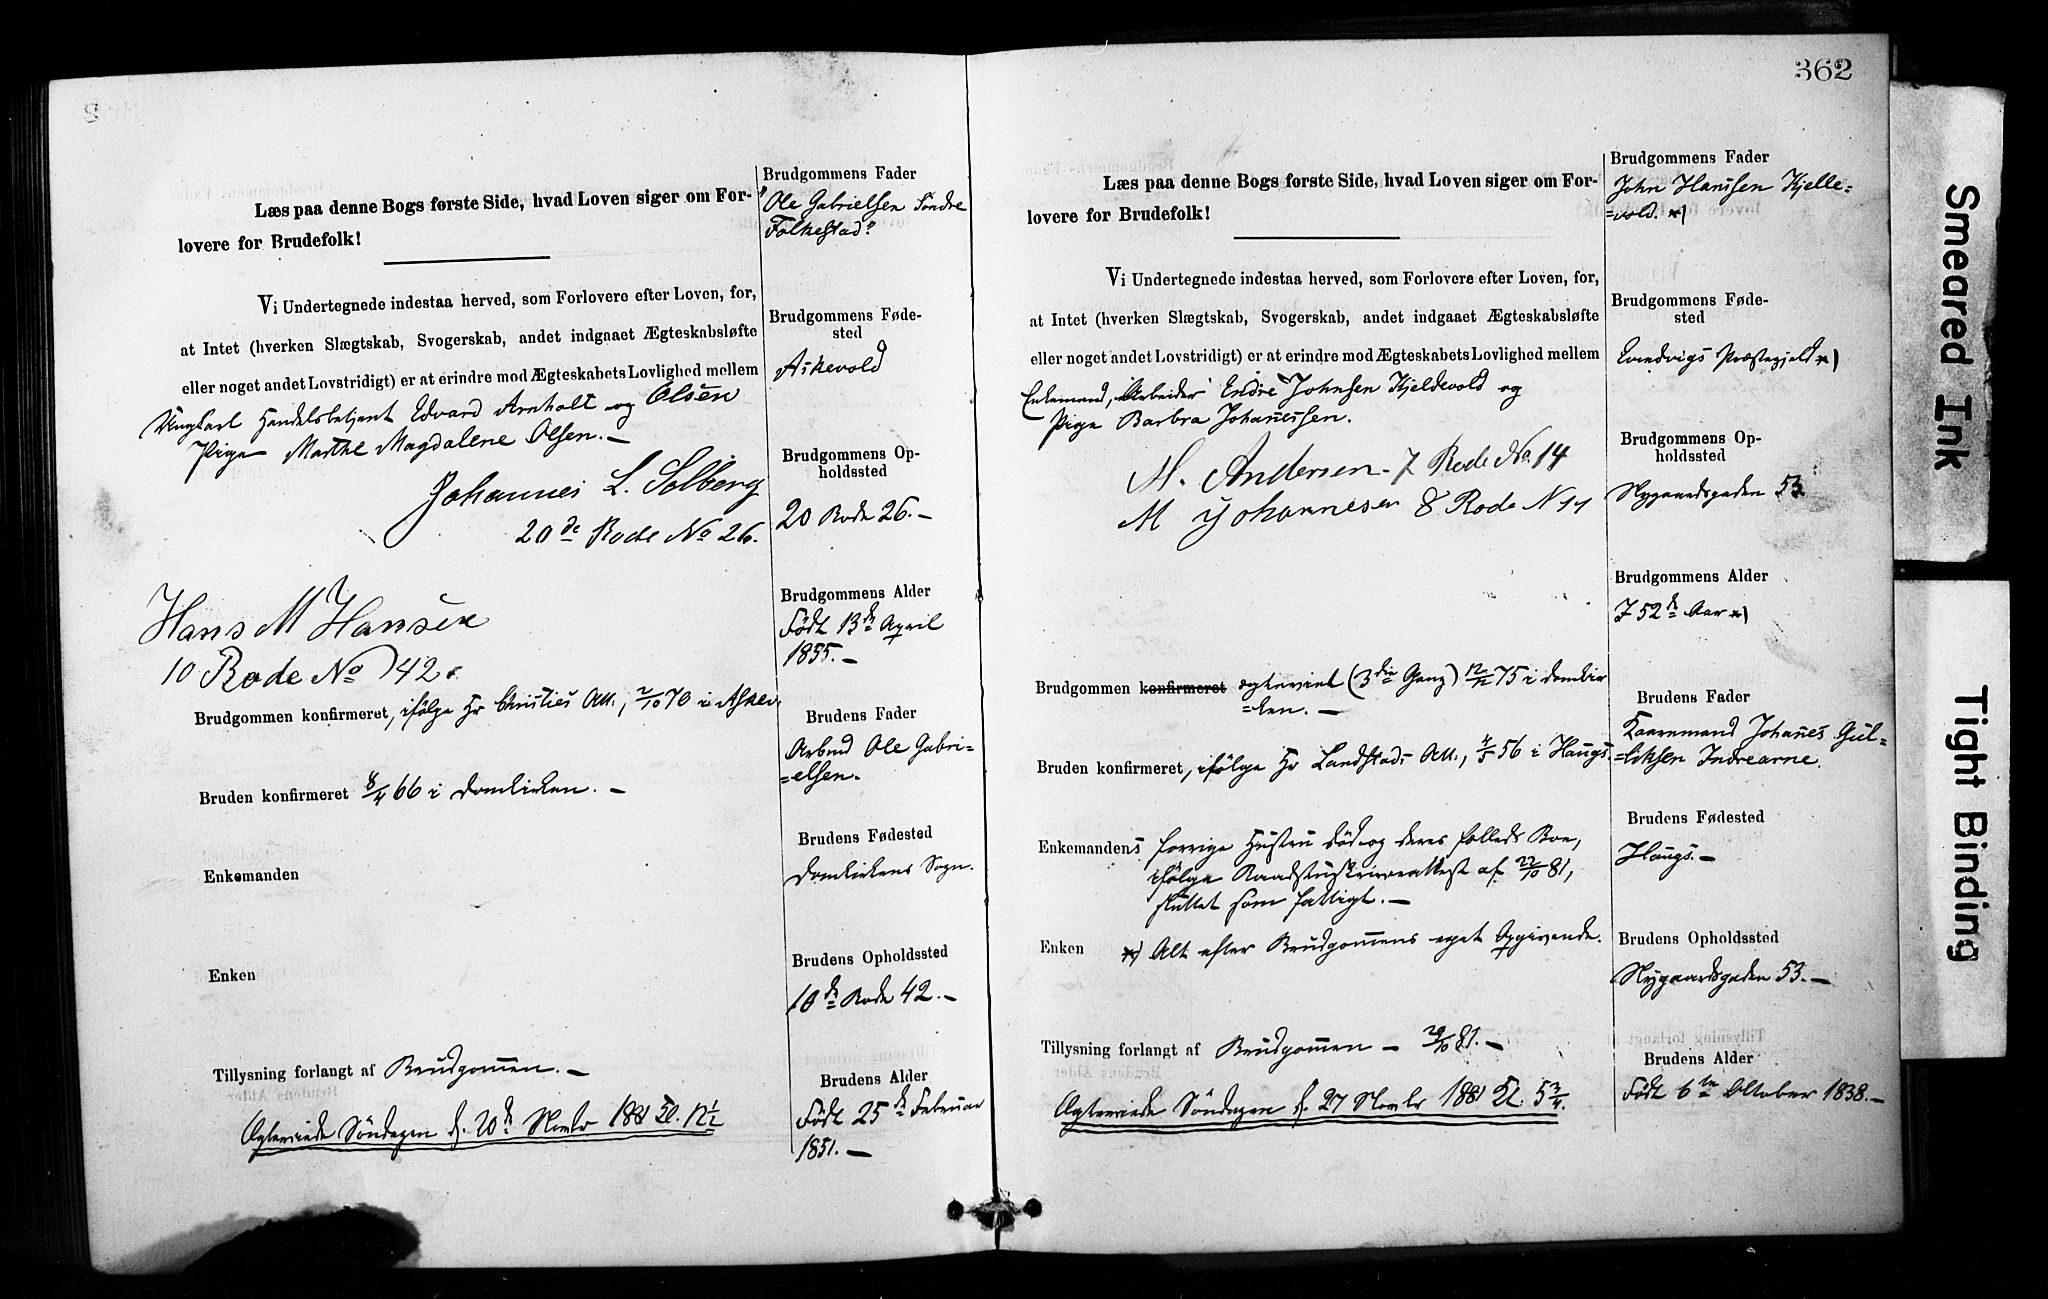 Læs paa denne Bogs første Side, hvad Loven siger om For-
lovere for Brudefolk!
Vi Undertegnede indestaa herved, som Forlovere efter Loven, for,
at Intet (hverken Slægtskab, Svogerskab, andet indgaaet Ægteskabsløfte
eller noget andet Lovstridigt) er at erindre mod Ægteskabets Lovlighed mellem
Ungkarl Handelsbetjent Edvard Arnholt Olsen og
Pige Marthe Magdalene Olsen. —
Johannes L. Solberg
20de Rode No 26.
Hans M Hansen
10 Rode No 42.
Brudgommen konfirmeret, ifølge Hr Christies Att., 2/10 70 i Askev.
Bruden konfirmeret 8/4 66 i Domkirken. —
Enkemanden
Enken
Tillysning forlangt af Brudgommen. —
Ægteviede Søndagen d. 20de Novbr 1881 Kl. 12½
Brudgommens Fader
"Ole Gabrielsen Søndre
Folkestad"
Brudgommens Føde-
sted
Askevold
Brudgommens Op-
holdssted
20 Rode 26. —
Brudgommens Alder
Født 13de April
1855. —
Brudens Fader
Arbmd Ole Gabri=
=elsen.
Brudens Fødested
Domkirkens Sogn.
Brudens Opholdssted
10de Rode 42. —
Brudens Alder
Født 25de Februar
1851. —
362
Læs paa denne Bogs første Side, hvad Loven siger om For-
lovere for Brudefolk!
Vi Undertegnede indestaa herved, som Forlovere efter Loven, for,
at Intet (hverken Slægtskab, Svogerskab, andet indgaaet Ægteskabsløfte
eller noget andet Lovstridigt) er at erindre mod Ægteskabets Lovlighed mellem
Enkemand, Arbeider Endre Johnsen Kjeldevold og
Pige Barbra Johanessen.
M. Andersen - 7 Rode No 14
M Johannesen 8 Rode N 11
Brudgommen konfirmeret ægteviet (3die Gang) 12/12 75 i Domkir
=ken. —
Bruden konfirmeret, ifølge Hr Landstads Att., 4/5 56 i Haugs.
Enkemandens forrige Hustru død og deres fælleds Boe,
ifølge Raadstuskriverattest af 22/10 81,
sluttet som fattigt. —
Enken *) Alt efter Brudgommens eget Opgivende.
Tillysning forlangt af Brudgommen — 29/10 81. —
Ægteviede Søndagen d. 27 Novbr 1881 Kl. 5¾.
Brudgommens Fader
John Hanssen Kjelle=
=vold. *)
Brudgommens Føde-
sted
Evindvigs Præstegjeld *)
Brudgommens Op-
holdssted
Nygaardsgaden 53
Brudgommens Alder
I 52de Aar *)
Brudens Fader
Kaarmand Johanes Gul=
=liksen Indrearne.
Brudens Fødested
Haugs. —
Brudens Opholdssted
Nygaardsgaden 53. —
Brudens Alder
Født 6te Oktober 1838. —
Smeared Ink
Tight Binding